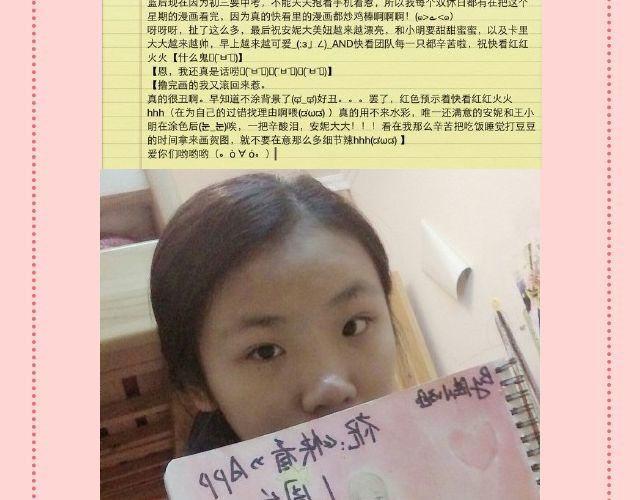 蓝后现在因为初三要中考，不能天天抱着手机看惹，所以我每个双休日都有在把这个
星期的漫画看完，因为真的快看里的漫画都炒鸡棒啊啊啊！(๑>ڡ<๑)
呀呀呀，扯了这么多，最后祝安妮大美妞越来越漂亮，和小明要甜甜蜜蜜，以及卡里
大大越来越帅，早上越来越可爱_(:з」∠)_AND快看团队每一只都辛苦啦，祝快看红红
火火【什么鬼
【恩，我还真是话唠
【撸完画的我又滚回来惹。
真的很丑啊。早知道不涂背景了(ಥ_ಥ)好丑。。。罢了，红色预示着快看红红火火
hhh（在为自己的过错找理由啊喂(ฅωฅ) ）真的用不来水彩，唯一还满意的安妮和王小
明在涂色后(눈_눈)唉，一把辛酸泪，安妮大大！！！看在我那么辛苦把吃饭睡觉打豆豆
的时间拿来画贺图，就不要在意那么多细节辣hhh(ฅωฅ) 】
爱你们哟哟哟（。ò ∀ ó。）
祝:《快看》APP